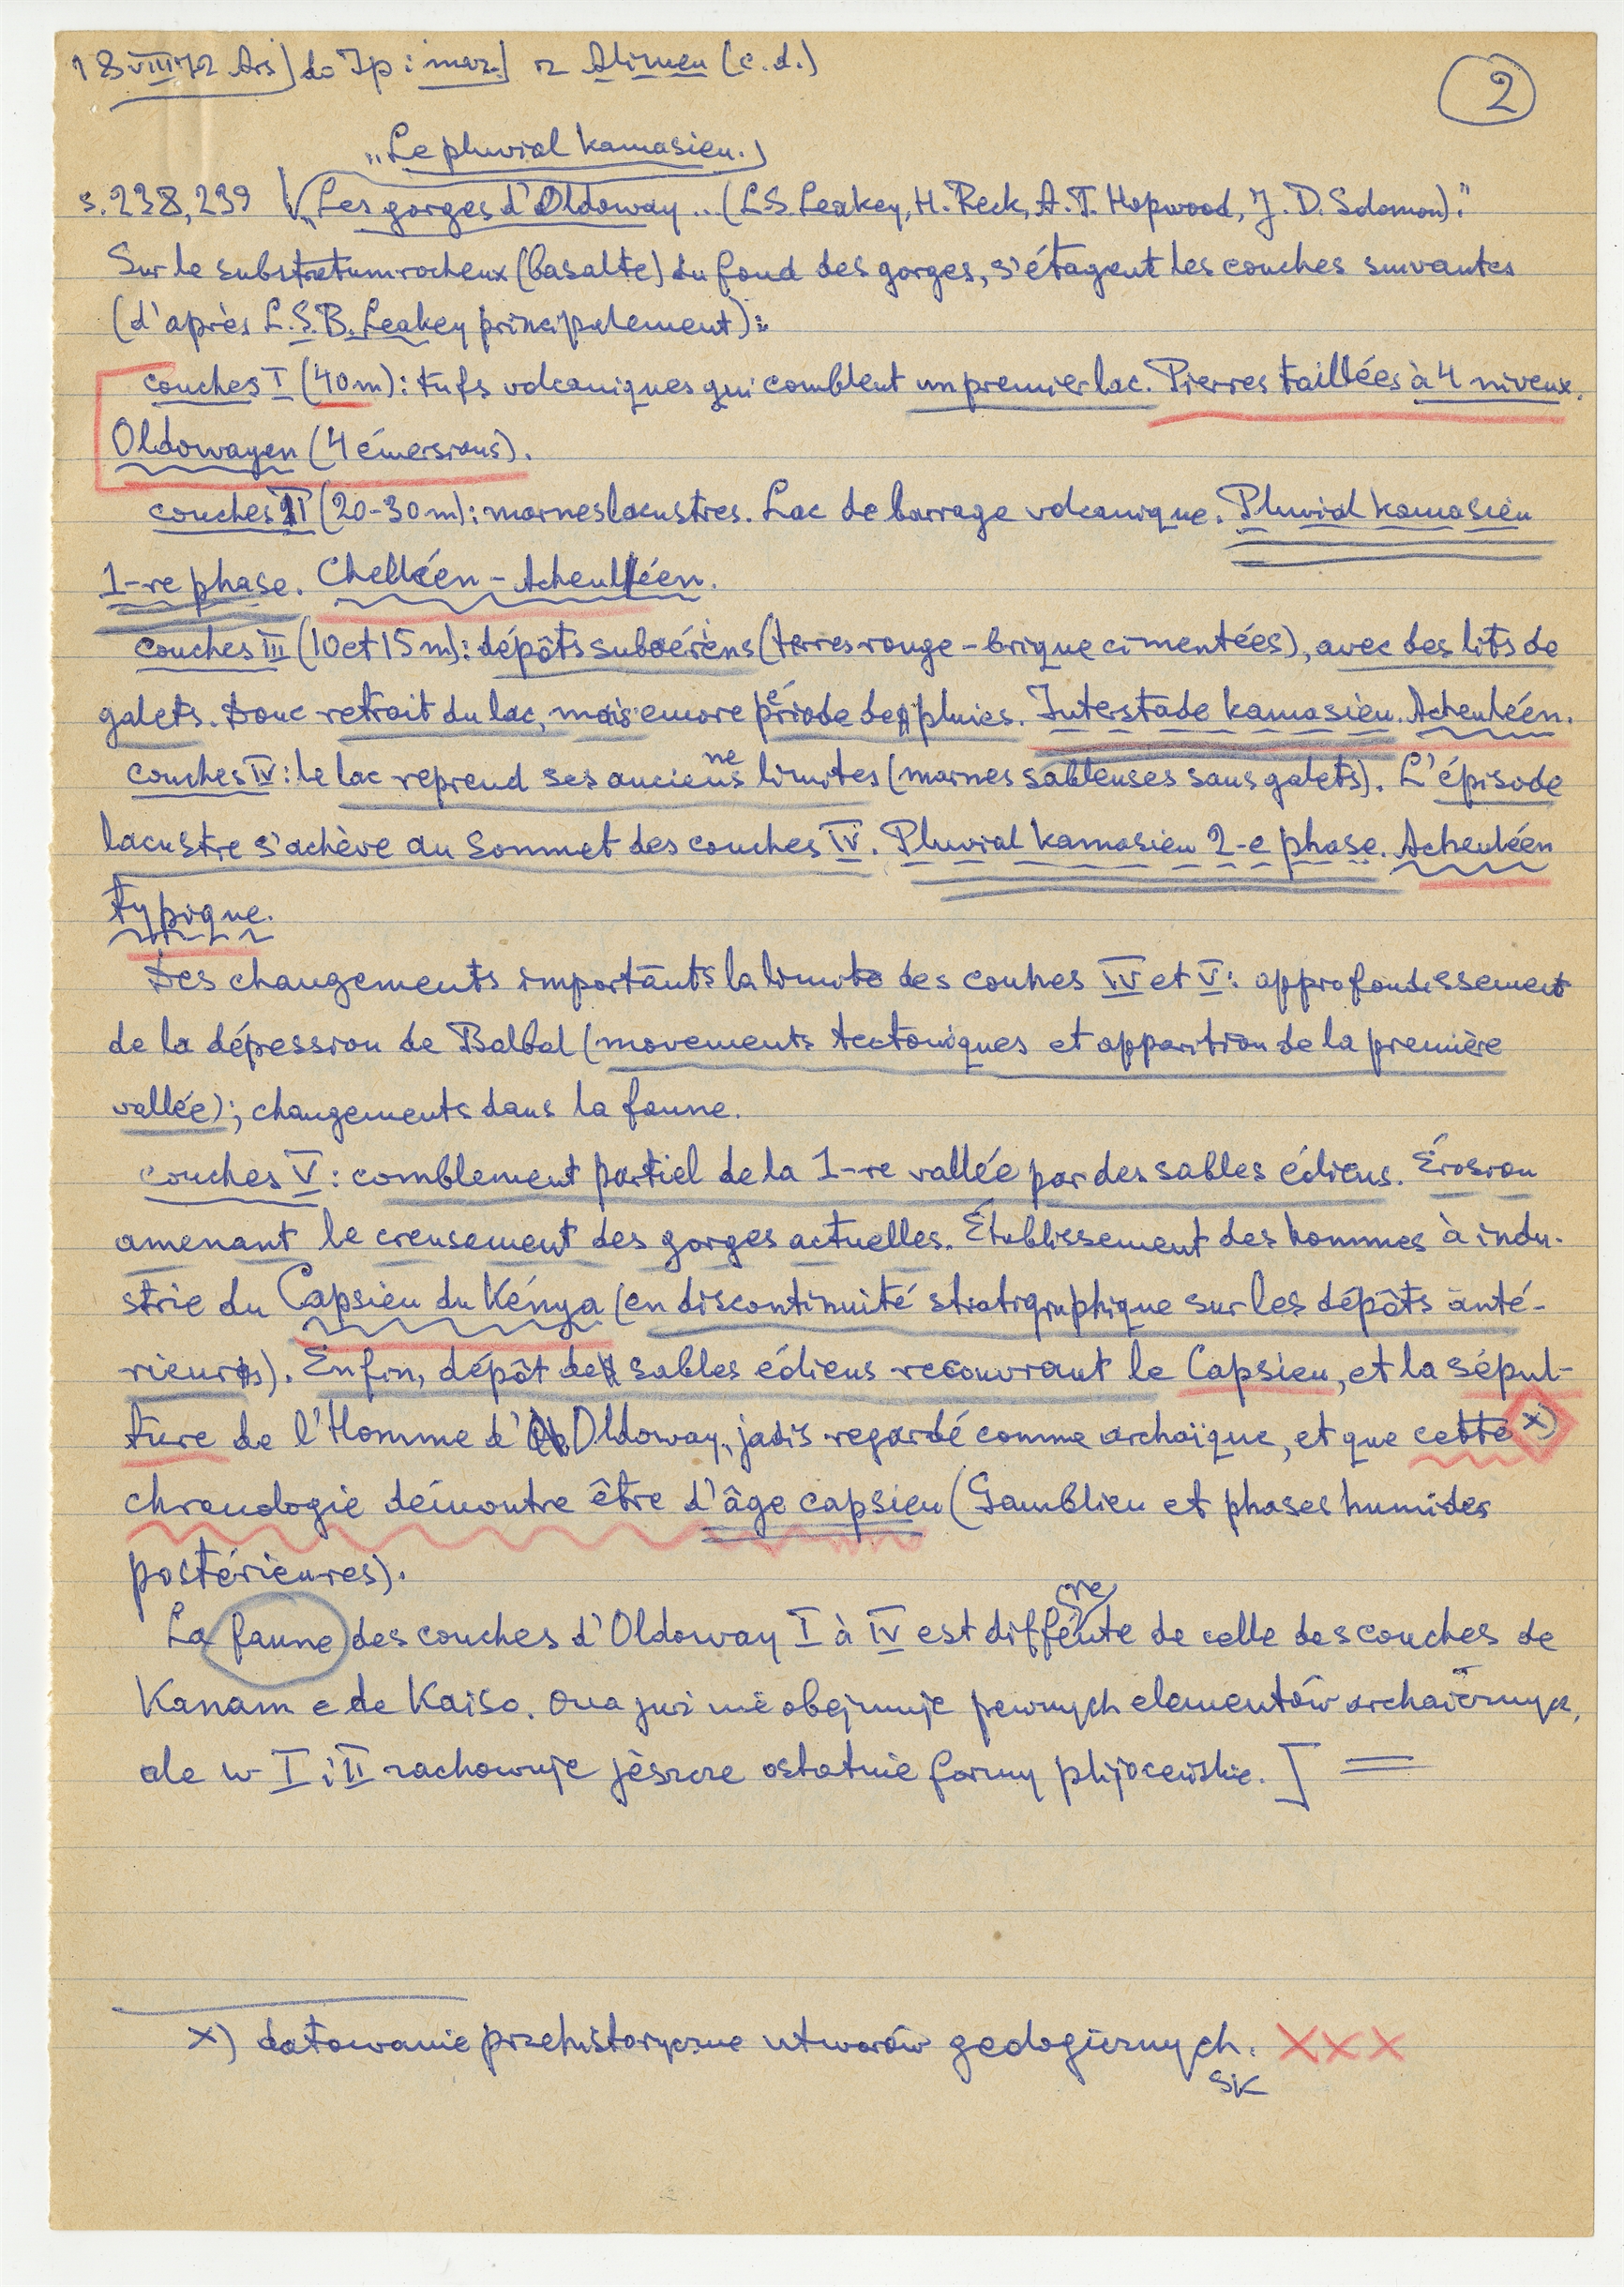 18 VIII 72 Ars] do Jp: maz] z Alimen (c.d.)
2
"Le pluvial kamasien."
s. 238, 239 "Les gorges d'Oldoway .. (L.S. Leakey, H. Reck, A.T. Hopwood, J.D. Solomon)."
Sur le substratum rocheux (basalte) du fond des gorges, s'étagent les couches suivantes
(d'après L.S.B. Leakey principalement):
couches I (40 m): tufs volcaniques qui comblent un premier lac. Pierres taillées à 4 niveux.
Oldowayen (4 émersions).
couches II (20-30 m): marnes lacustres. Lac de barrage volcanique. Pluvial kamasien
1-re phase. Chelléen - Acheuléen.
couches III (10 et 15 m): dépôts subaériens (terres rouge-brique cimentées), avec des lits de
galets. Donc retrait du lac, mais encore période de pluies. Interstade kamasien. Acheuléen.
couches IV: le lac reprend ses anciennes limites (marnes sableuses sans galets). L'épisode
lacustre s'achève au sommet des couches IV. Pluvial kamasien 2-e phase. Acheuléen
typique.
Des changements importants la limite des couches IV et V: approfondissement
de la dépession de Balbal (movements tectoniques et apparition de la première
vallée); changements dans la faune.
couches V: comblement partiel de la 1-re vallée par des sables éoliens. Érosion
amenant le creusement des gorges actuelles. Établissement des hommes à indu-
strie du Capsien du Kénya (en discontinuité stratigraphique sur les dépôts anté-
rieurs). Enfin, dépôt de sables éoliens recouvrant le Capsien, et la sépul-
ture de l'Homme d'Oldoway, jadis regardé comme archaïque, et que cette x)
chronologie démontre être d'âge capsien (Gamblien et phases humides
postérieures).
La faune des couches d'Oldoway I à IV est différente de celle des couches de
Kanam e de Kaiso. Ona już nie obejmuje pewnych elementów archaicznych,
ale w I i II zachowuje jeszcze ostatnie formy plijoceńskie.] =
x) datowanie przedhistoryczne utworów geologicznych. XXX
SK